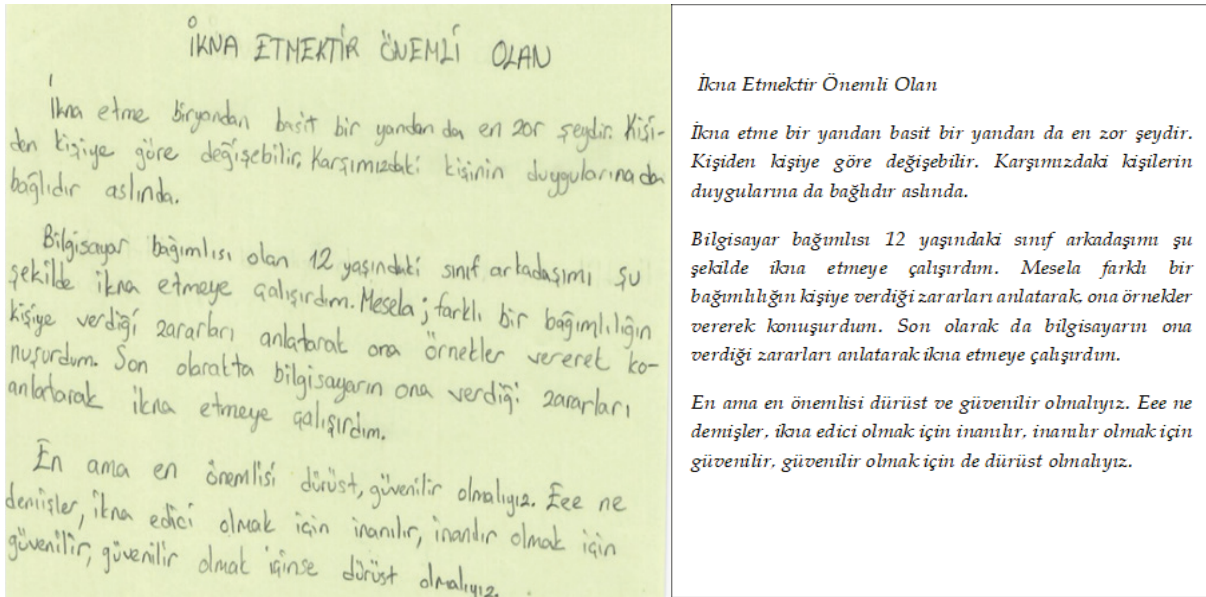 İKNA ETMEKTİR ÖNEMLİ OLAN
İkna etme biryandan basit bir yandan da en zor şeydir. Kişi-
den kişiye göre değişebilir. Karşımızdaki kişinin duygularına da
bağlıdır aslında.
Bilgisayar bağımlısı olan 12 yaşındaki sınıf arkadaşımı şu
şekilde ikna etmeye çalışırdım. Mesela; farklı bir bağımlılığın
kişiye verdiği zararları anlatarak ona örnekler vererek ko-
nuşurdum. Son olarakta bilgisayarın ona verdiği zararları
anlatarak ikna etmeye çalışırdım.
En ama en önemlisi dürüst, güvenilir olmalıyız. Eee ne
demişler, ikna edici olmak için inanılır, inanılır olmak için
güvenilir, güvenilir olmak içinse dürüst olmalıyız.
İkna Etmektir Önemli Olan
İkna etme bir yandan basit bir yandan da en zor şeydir.
Kişiden kişiye göre değişebilir. Karşımızdaki kişilerin
duygularına da bağlıdır aslında.
Bilgisayar bağımlısı 12 yaşındaki sınıf arkadaşımı şu
şekilde ikna etmeye çalışırdım. Mesela farklı bir
bağımlılığın kişiye verdiği zararları anlatarak, ona örnekler
vererek konuşurdum. Son olarak da bilgisayarın ona
verdiği zararları anlatarak ikna etmeye çalışırdım.
En ama en önemlisi dürüst ve güvenilir olmalıyız. Eee ne
demişler, ikna edici olmak için inanılır, inanılır olmak için
güvenilir, güvenilir olmak için de dürüst olmalıyız.